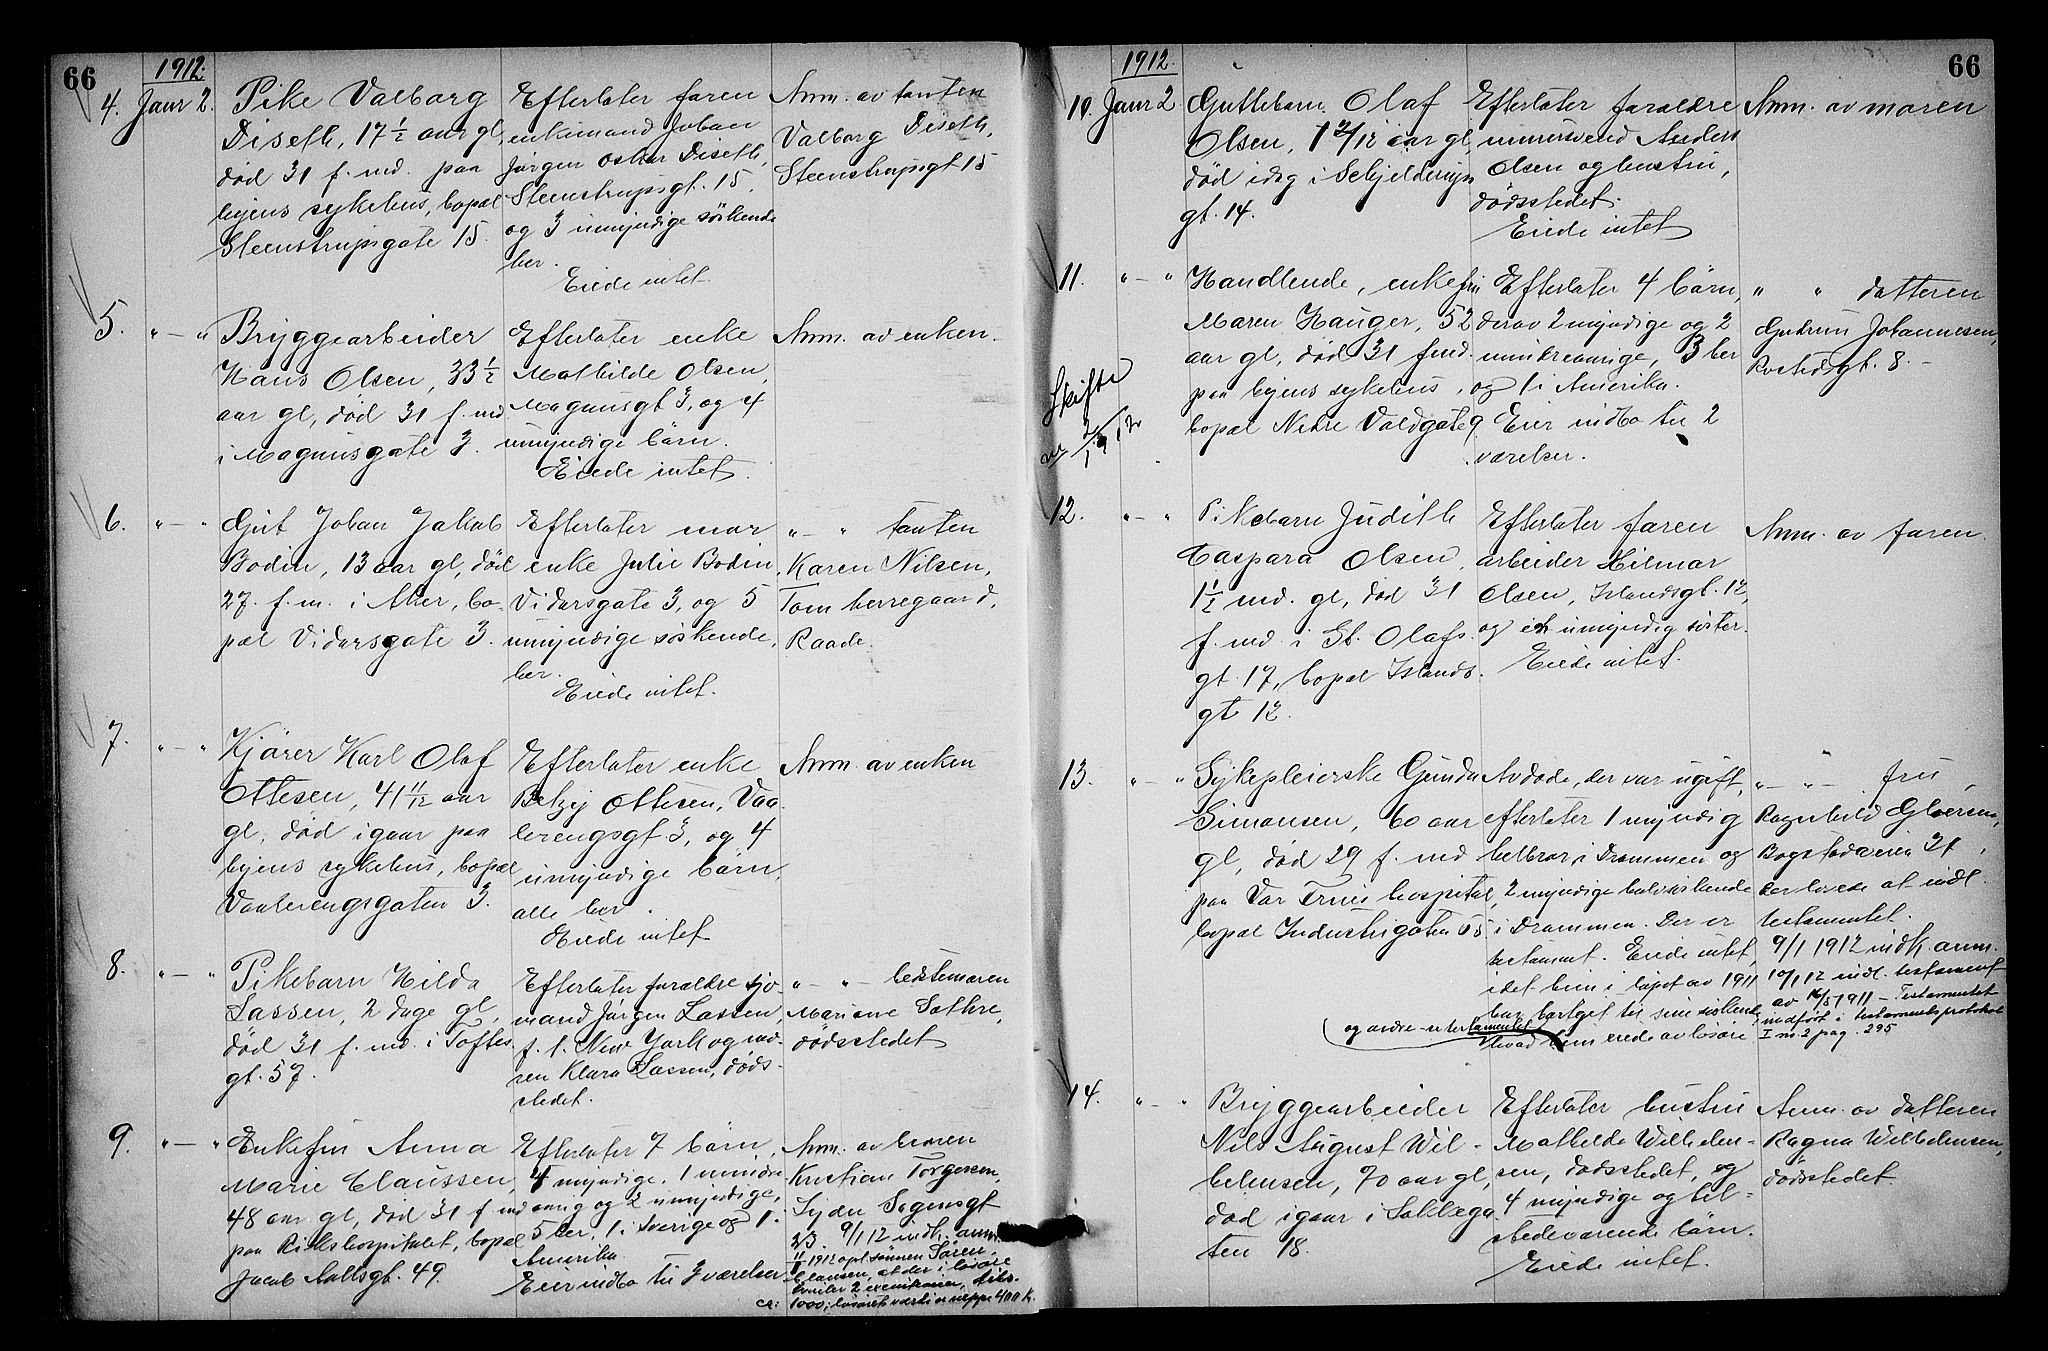 66
1912.
4. Janr 2. Pike Valborg
Diseth, 17 1/2 aar gl,
død 31 f. md. paa
byens sykehus, bopæl
Steenstrupsgate 15.
Efterlater faren
enkemand Johan
Jørgen Oskar Diseth,
Steenstrupsgt. 15,
og 3 umyndige söskende
her.
Eiede intet.
Anm. av tanten
Valborg Diseth,
Steenstrupsgt 15
5. " — " Bryggearbeider
Hans Olsen, 33 1/2
aar gl, død 31 f. md
i Magnusgate 3.
Efterlater enke
Mathilde Olsen,
Magnusgt 3, og 4
umyndige börn.
Eiede intet.
Anm. av enken.
6. " — " Gut Johan Jakob
Bodin, 13 aar gl, død
27. f. m. i Aker, bo-
pæl Vidarsgate 3.
Efterlater mor
enke Julie Bodin,
Vidarsgate 3, og 5
umyndige søskende,
her.
Eiede intet.
" — " tanten
Karen Nilsen,
Tom herregaard,
Raade.
7. " — " Kjører Karl Olaf
Ottesen, 41 11/12 aar
gl, død igaar paa
byens sykehus, bopæl
Vaalerengsgaten 3.
Efterlater enke
Betzy Ottesen, Vaa-
lerengsgt 3, og 4
umyndige børn,
alle her.
Eiede intet
Anm. av enken
8. " — " Pikebarn Hilda
Lassen, 2 dage gl,
død 31 f. md. i Toftes
gt. 57.
Efterlater forældre sjø-
mand Jørgen Lassen,
f. t. New York og mo-
ren Klara Lassen, døds-
stedet.
" — " bestemoren
Mariane Sæthre,
dødsstedet
9. " — " Enkefru Anna
Marie Claussen,
48 aar gl, død 31 f. md
paa Rikshospitalet, bopæl
Jacob Aallsgt. 49.
Efterlater 7 børn,
4 myndige, 1 mindre
aarig og 2 umyndige,
5 her, 1 i Sverige og 1 i
Amerika
Eier indbo til 3 værelser
Anm. av broren
Kristian Torgersen,
Lyder Sagensgt
23. 9/1 12 indk. anm.
11/1 1912 opl. sønnen Søren
Clausen, at der i løsøre
ca: 1000; løsørets værdi er neppe 400 K.
66
1912.
10. Janr 2 Guttebarn Olaf
Olsen, 1 2/12 aar gl,
død idag i Schjelderups
gt. 14.
Efterlater forældre
murersvend Anders
Olsen og hustru,
dødsstedet.
Eiede intet
Anm. av moren
11. " — " Handlende, enkefru
Maren Hauger, 52
aar gl, død 31 f md.
paa byens sykehus,
bopæl Nedre Voldgate 9
Skifte
Efterlater 4 børn,
derav 2 myndige og 2
mindreaarige, 3 her
og 1 i Amerika.
Eier indbo til 2
værelser.
" " datteren
Gudrun Johannesen,
Rostedsgt. 8. -
12. " — " Pikebarn Judith
Caspara Olsen,
1 1/2 md. gl, død 31
f. md i St. Olafs
gt. 17, bopæl Islands
gt 12.
Efterlater faren
arbeider Hilmar
Olsen, Islandsgt. 12,
og en umyndig søster.
Eiede intet.
Anm. av faren.
13. " — " Sykepleierske Gunda
Simonsen, 60 aar
gl, død 29 f. md
paa Vor Frues hospital,
bopæl Industrigaten 55
Avdøde, der var ugift,
efterlater 1 myndig
helbror i Drammen og
2 myndige halvsøskende
i Drammen. Der er
testament. Eiede intet,
idet hun i løpet av 1911
har bortgit til sine søskende
og andre
hvad hun eiede av løsøre
" — " fru
Ragnhild Gløersen,
Bogstadveien 21,
der lovede at indl.
testamentet.
9/1 1912 indk. anm.
10/1 12 indl. testament
av 16/5 1911 – Testamentet
indført i testamentsprotokol
I no 2 pag. 295
14. " — " Bryggearbeider
Nils August Wil-
helmsen, 70 aar gl,
død igaar i Sakkega
ten 18.
Efterlater hustru
Mathilde Wilhelm-
sen, dødsstedet, og
4 myndige og til-
stedeværende børn.
Eiede intet.
Anm. av datteren
Ragna Wilhelmsen,
dødsstedet